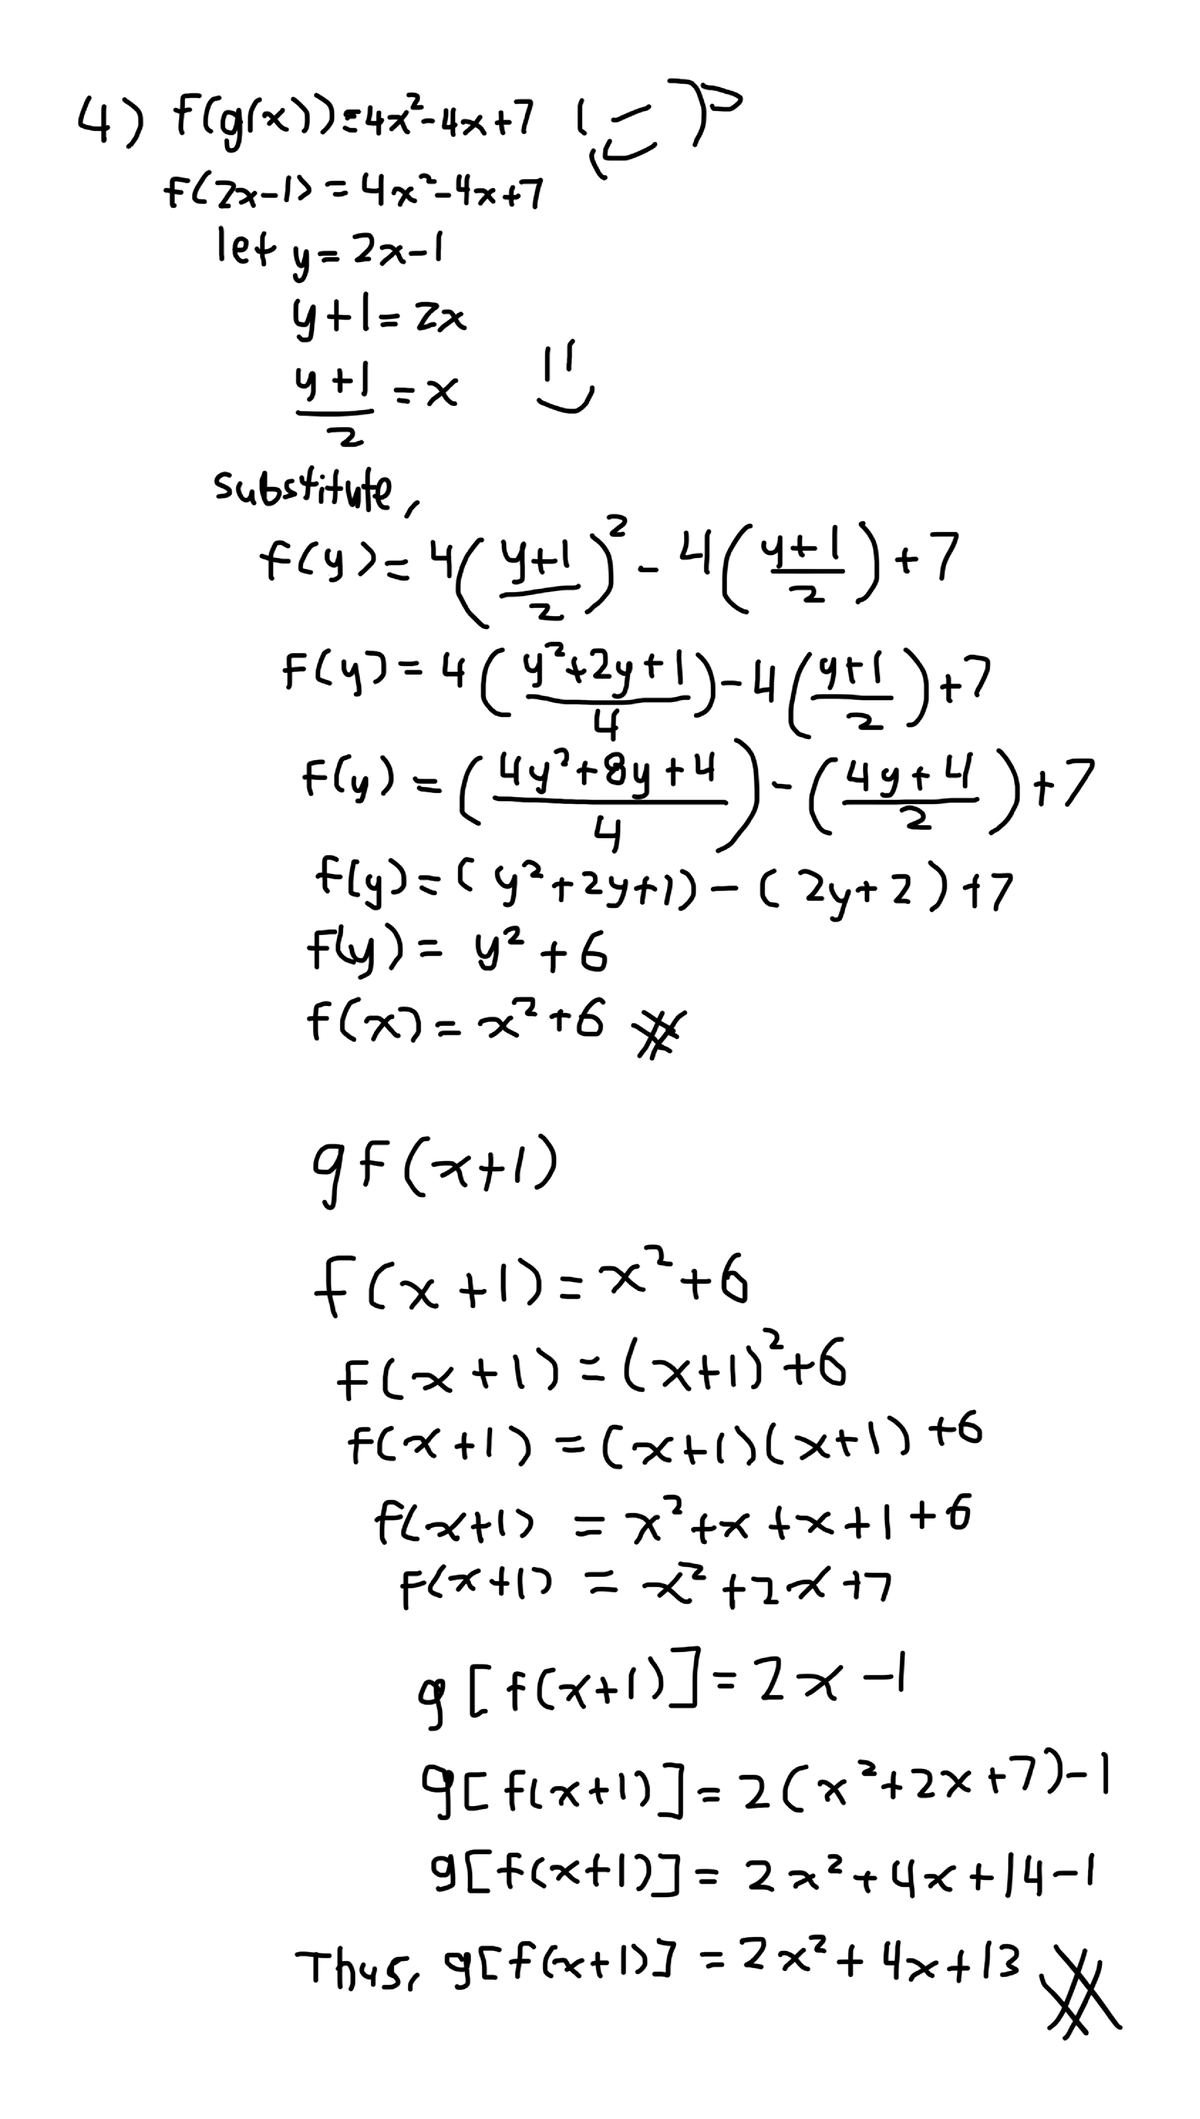 4) f(g(x))=4x²-4x+7
f(2x-1) = 4x²-4x+7
let y = 2x-1
y+1 = 2x
(y+1)/2 = x
substitute,
f(y) = 4((y+1)/2)² - 4((y+1)/2) + 7
f(y) = 4((y²+2y+1)/4) - 4((y+1)/2) + 7
f(y) = ((4y²+8y+4)/4) - ((4y+4)/2) + 7
f(y) = (y²+2y+1) - (2y+2) + 7
f(y) = y² + 6
f(x) = x² + 6
gf(x+1)
f(x+1) = x² + 6
f(x+1) = (x+1)² + 6
f(x+1) = (x+1)(x+1) + 6
f(x+1) = x² + x + x + 1 + 6
f(x+1) = x² + 2x + 7
g[f(x+1)] = 2x - 1
g[f(x+1)] = 2(x²+2x+7) - 1
g[f(x+1)] = 2x² + 4x + 14 - 1
Thus, g[f(x+1)] = 2x² + 4x + 13